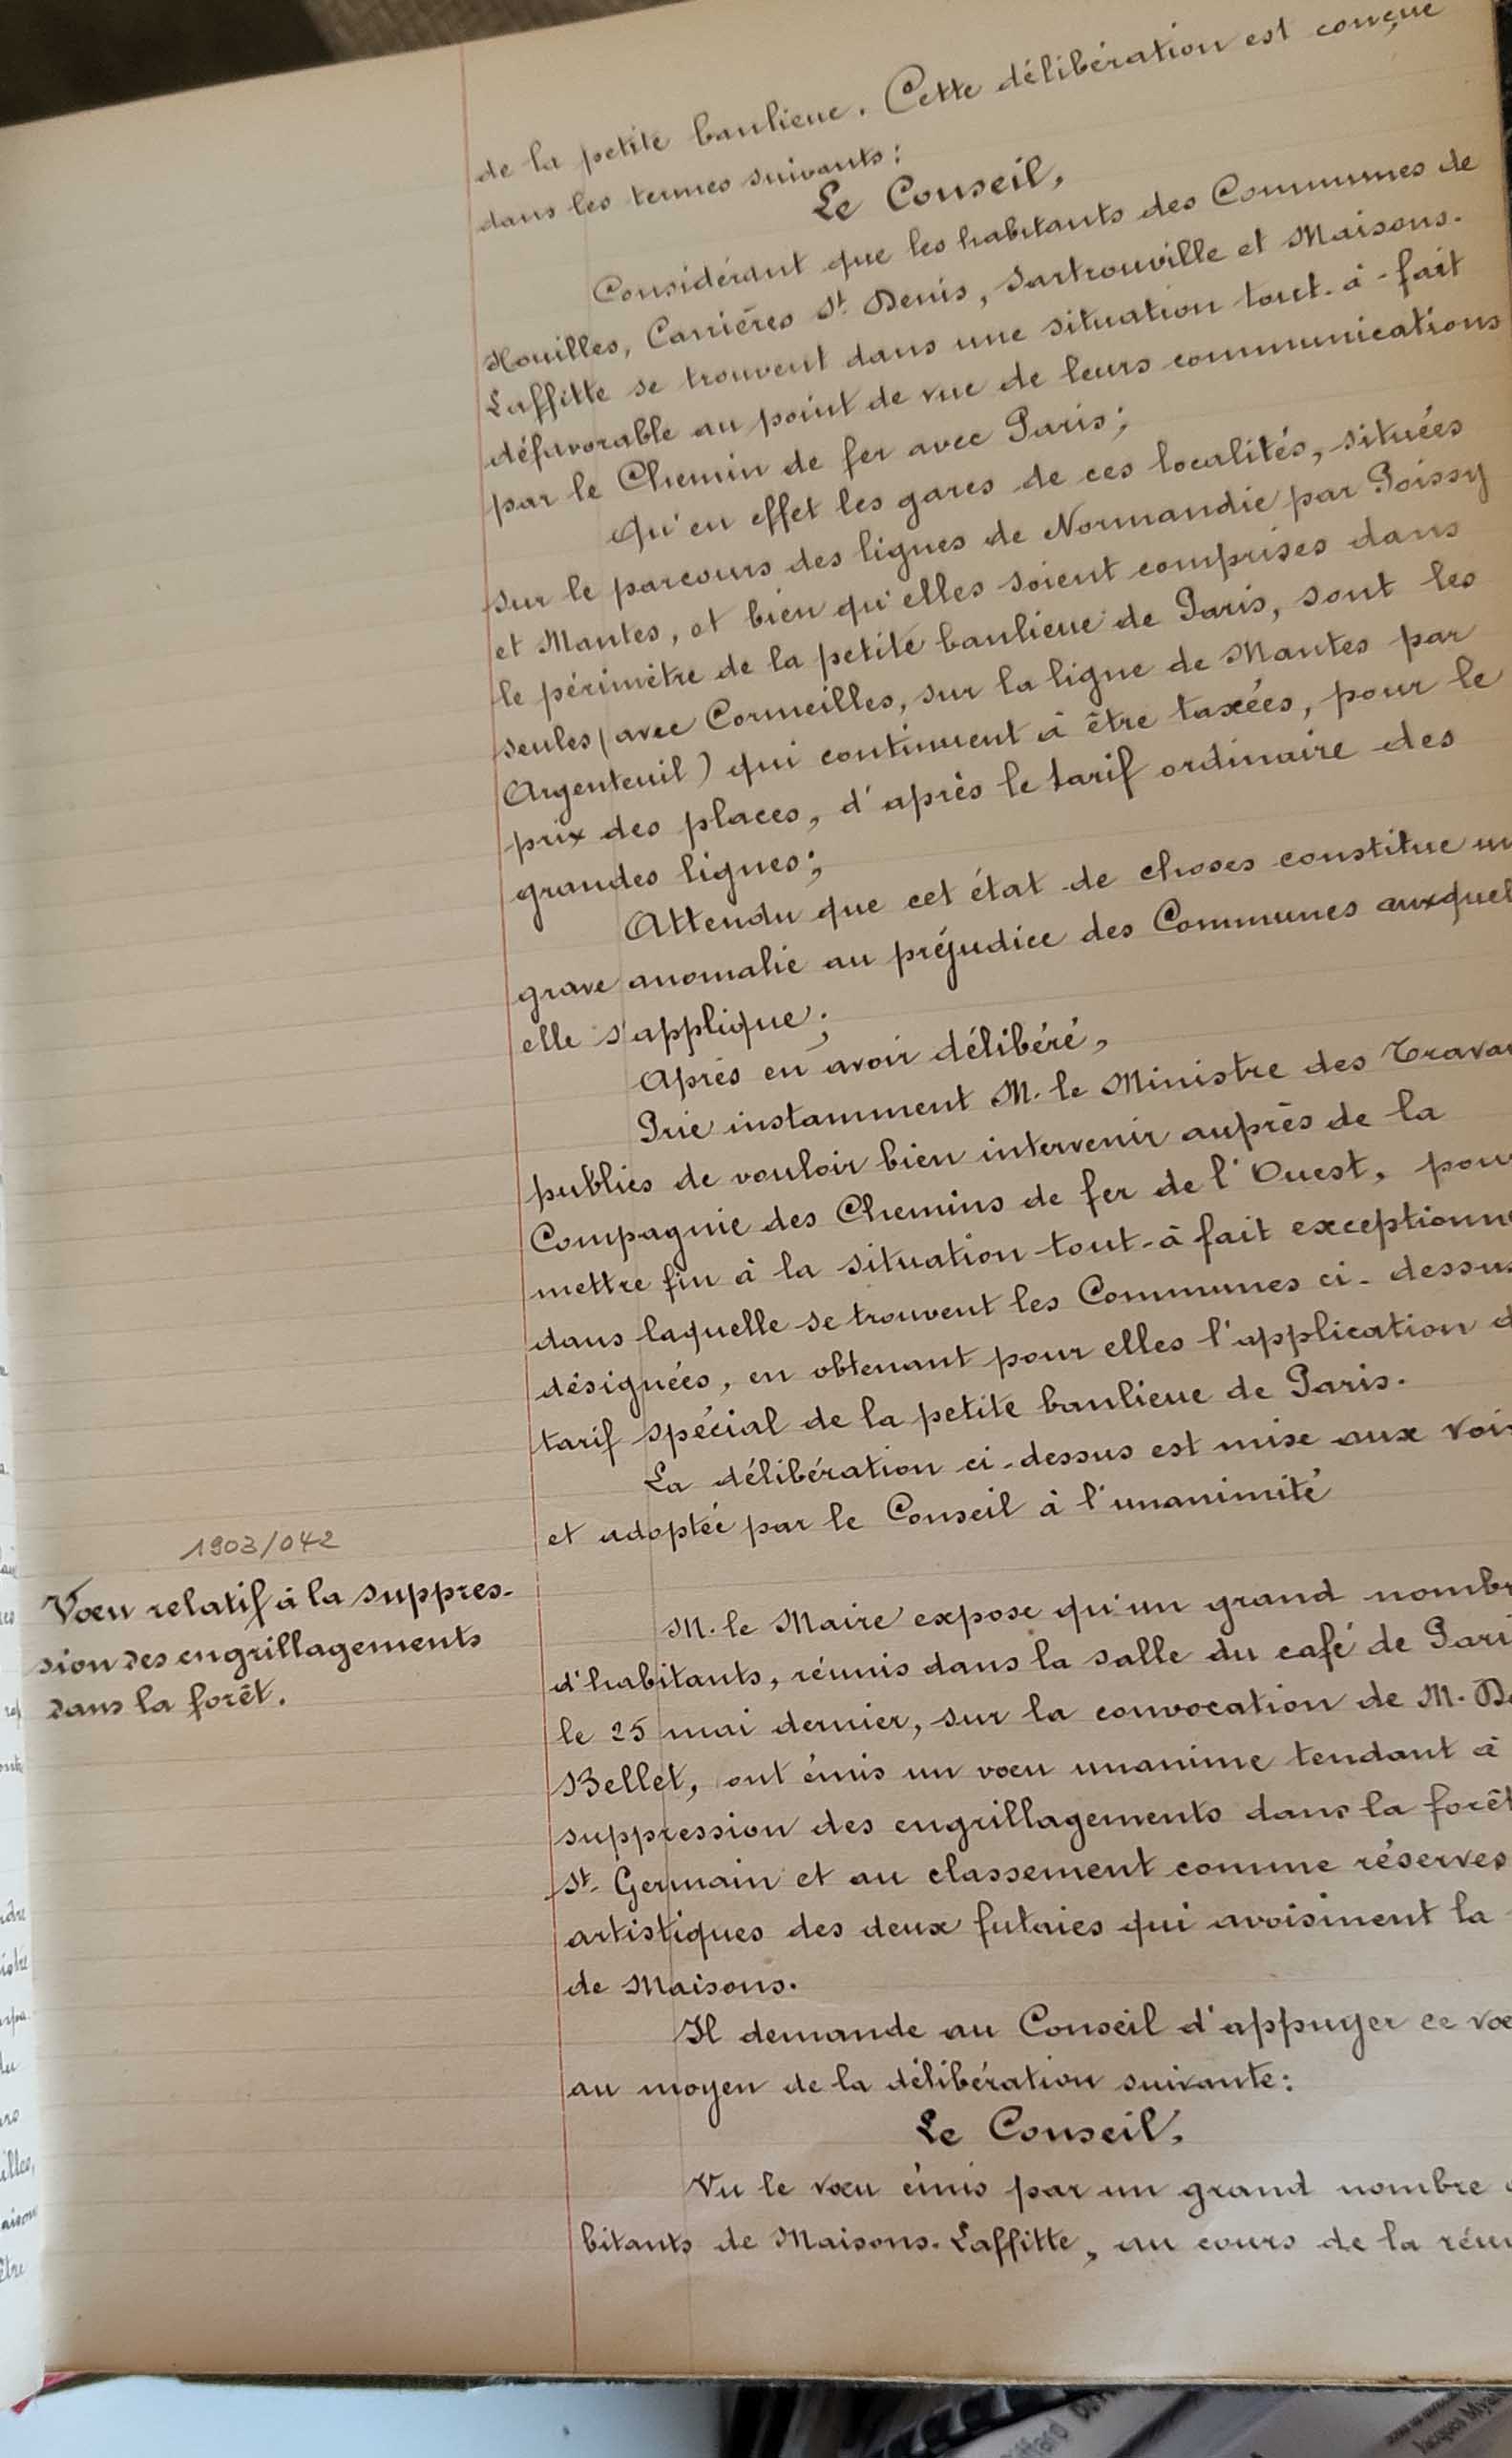 de la petite banlieue. Cette délibération est conçue
dans les termes suivants :
Le Conseil,
Considérant que les habitants des Communes de
Houilles, Carrières St. Denis, Sartrouville et Maisons.
Laffitte se trouvent dans une situation tout-à-fait
défavorable au point de vue de leurs communications
par le Chemin de fer avec Paris ;
Qu'en effet les gares de ces localités, situées
sur le parcours des lignes de Normandie par Poissy
et Mantes, et bien qu'elles soient comprises dans
le périmètre de la petite banlieue de Paris, sont les
seules (avec Cormeilles, sur la ligne de Mantes par
Argenteuil) qui continuent à être taxées, pour le
prix des places, d'après le tarif ordinaire des
grandes lignes ;
Attendu que cet état de choses constitue un
grave anomalie au préjudice des Communes auxquel
elle s'applique ;
Après en avoir délibéré,
Prie instamment M. le Ministre des Trava
publics de vouloir bien intervenir auprès de la
Compagnie des Chemins de fer de l'Ouest, pou
mettre fin à la situation tout-à fait exceptionn
dans laquelle se trouvent les Communes ci-dessus
désignées, en obtenant pour elles l'application d
tarif spécial de la petite banlieue de Paris.
La délibération ci-dessus est mise aux voi
et adoptée par le Conseil à l'unanimité
1903/042
Vœu relatif à la suppres-
sion des engrillagements
dans la forêt.
M. le Maire expose qu'un grand nombr
d'habitants, réunis dans la salle du café de Pari
le 25 mai dernier, sur la convocation de M.
Bellet, ont émis un vœu unanime tendant à
suppression des engrillagements dans la forêt
St. Germain et au classement comme réserves
artistiques des deux futaies qui avoisinent la
de Maisons.
Il demande au Conseil d'appuyer ce vœ
au moyen de la délibération suivante :
Le Conseil,
Vu le vœu émis par un grand nombre
bitants de Maisons-Laffitte, au cours de la réu